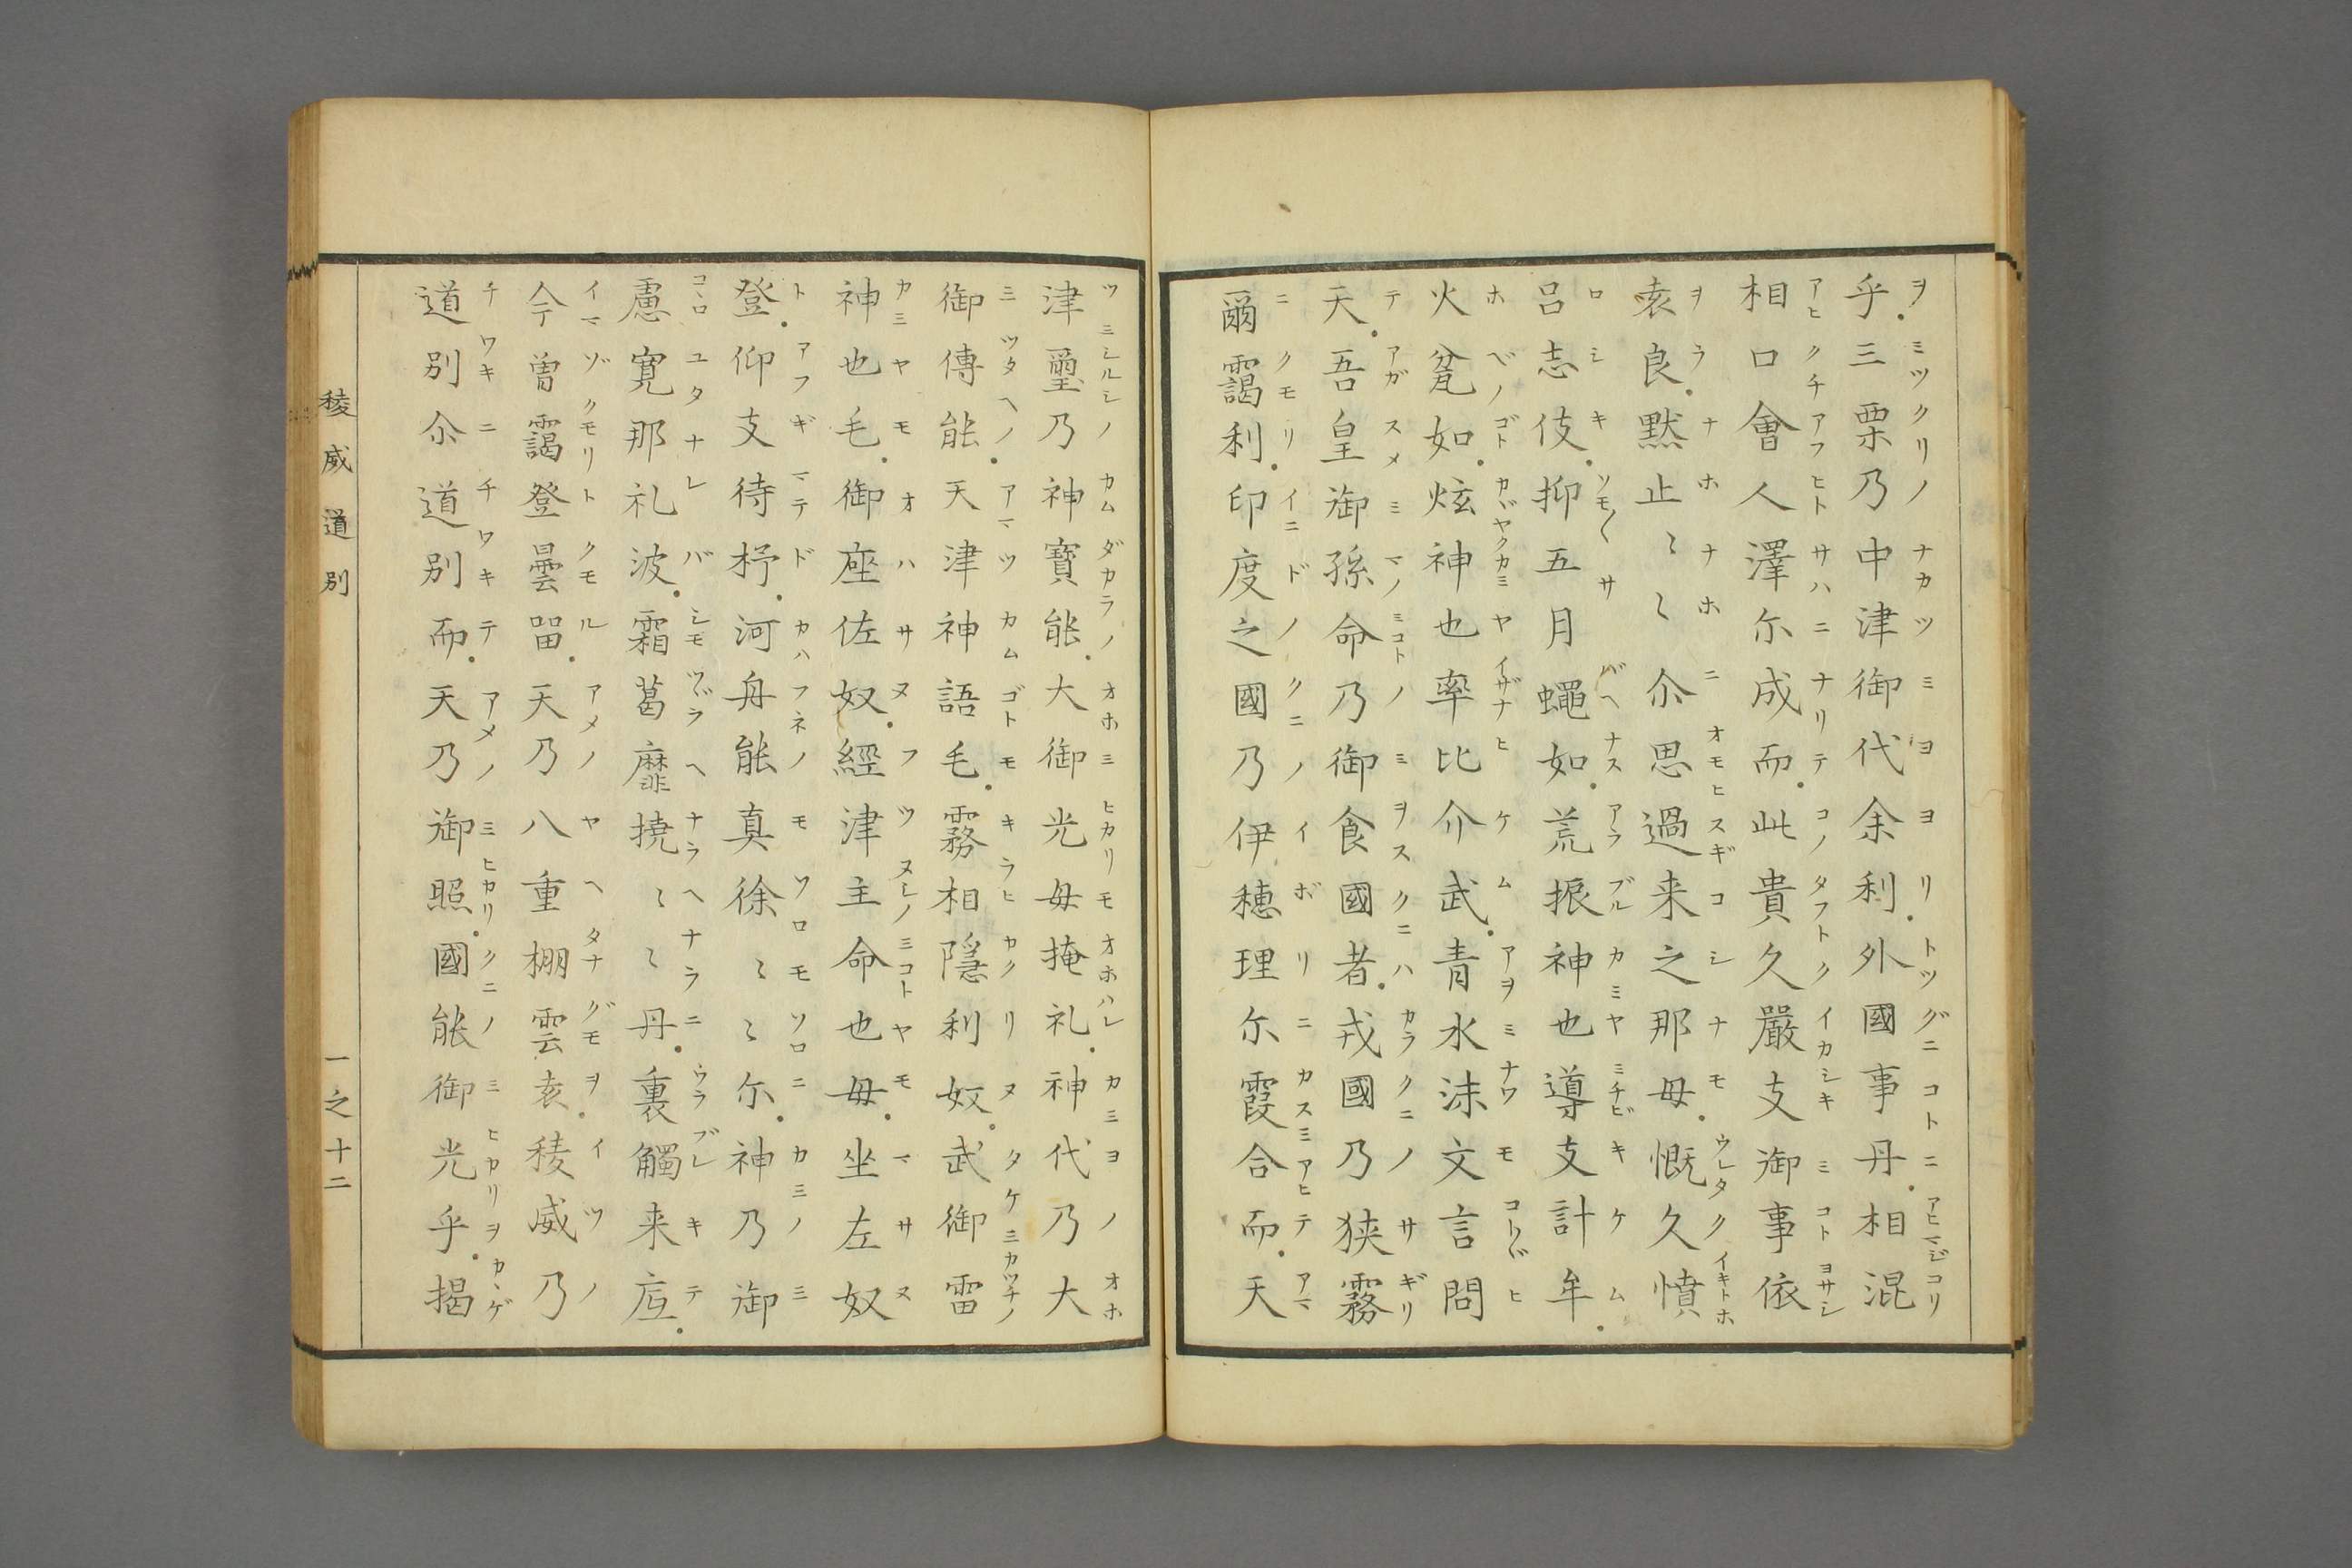 乎三栗乃中津御代余利外國事丹相混
相口會人澤尓成而此貴久嚴支御事依
袁良黙止〻〻尒思過来之那毋慨久憤
呂志伎抑五月蠅如荒振神也導支計牟
火瓮如炫神也率比介武青水沫文言問
天吾皇御孫命乃御食國者戎國乃狭霧
爾靄利印度之國乃伊穂理尓霞合而天
津璽乃神寳能大御光毋掩礼神代乃大
御傳能天津神語毛霧相隠利奴武御雷
神也毛御座佐奴經津主命也毋坐左奴
登仰支待杼河舟能真徐〻〻尓神乃御
慮寛那礼波霜葛靡撓〻〻丹裏觸来㢝
今曽靄登曇留天乃八重棚雲袁稜威乃
道別尒道別而天乃御照國能御光乎揭
稜威道別
一之十二